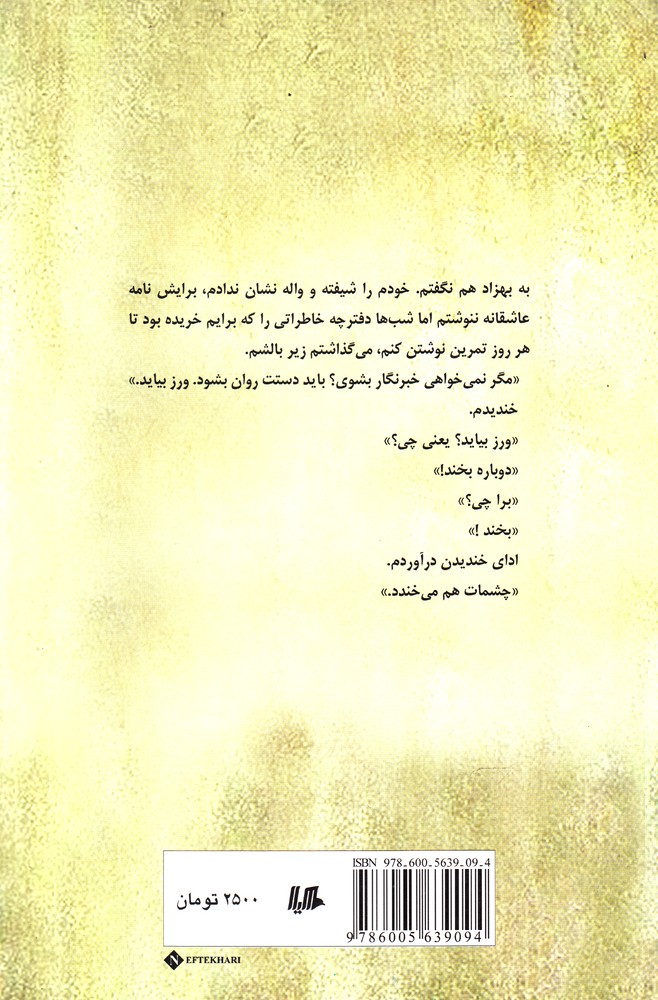 به بهزاد هم نگفتم. خودم را شیفته و واله نشان ندادم، برایش نامه
عاشقانه ننوشتم اما شب‌ها دفترچه خاطراتی را که برایم خریده بود تا
هر روز تمرین نوشتن کنم، می‌گذاشتم زیر بالشم.
«مگر نمی‌خواهی خبرنگار بشوی؟ باید دستت روان بشود. ورز بیاید.»
خندیدم.
«ورز بیاید؟ یعنی چی؟»
«دوباره بخند!»
«برا چی؟»
«بخند !»
ادای خندیدن درآوردم.
«چشمات هم می‌خندد.»
ISBN 978-600-5639-09-4
۲۵۰۰ تومان
هیلا
9 786005 639094
N EFTEKHARI